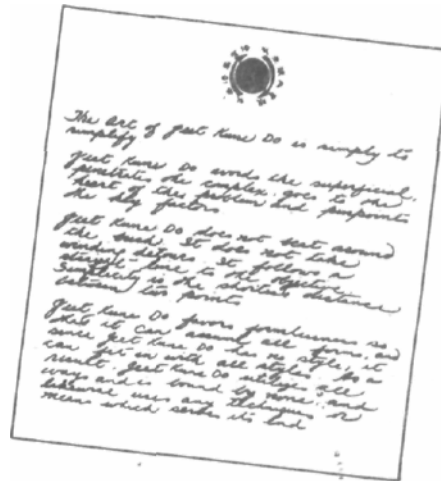 The Art of Jeet Kune Do is simply to
simplify
Jeet Kune Do avoids the superficial,
penetrates the complex, goes to the
heart of the problem and pinpoints
the key factors
Jeet Kune Do does not beat around
the bush. It does not take
winding detours. It follows a
straight line to the objective.
Simplicity is the shortest distance
between two points
Jeet Kune Do favors formlessness so
that it can assume all forms, and
since Jeet Kune Do has no style, it
can fit in with all styles. As a
result, Jeet Kune Do utilizes all
ways and is bound by none, and
likewise uses any technique or
means which serves its end